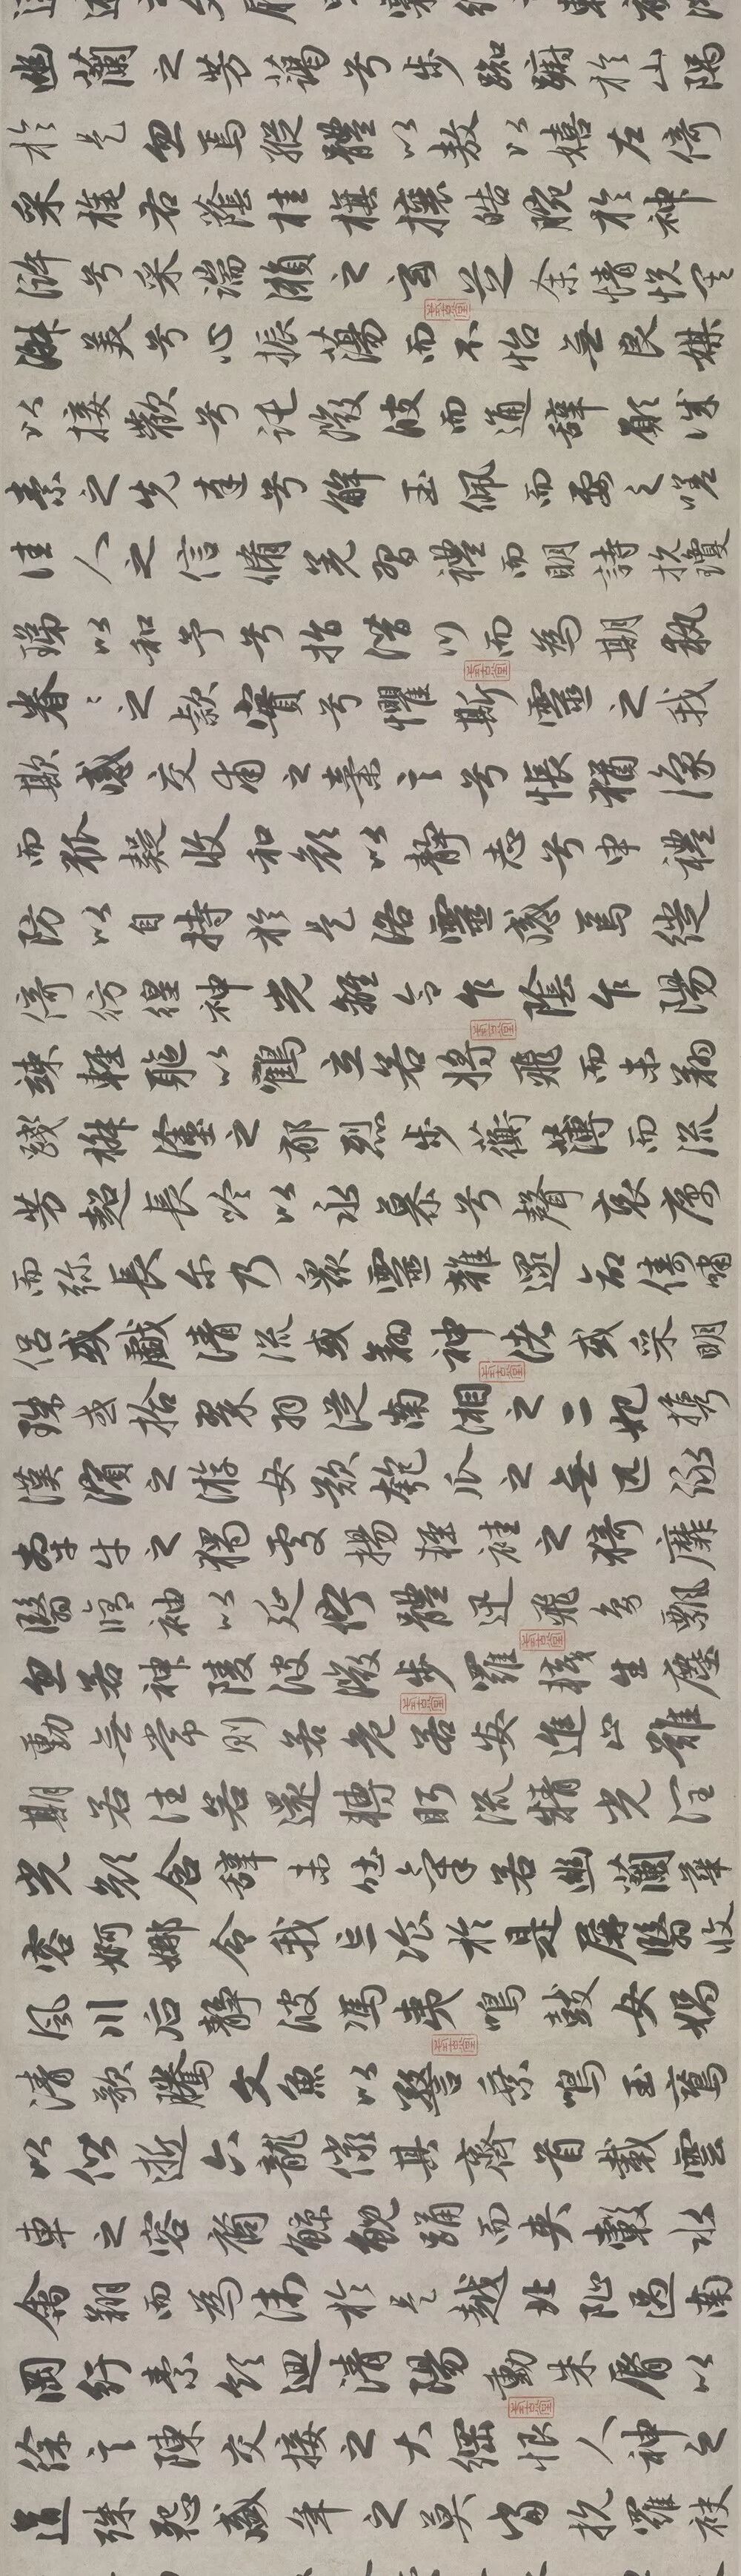 幽蘭之芳藹兮步踟躕於山隅
於是忽焉縱體以敖以嬉左倚
采旄右蔭桂旗攘皓腕於神
滸兮采湍瀨之玄芝余情悅其
淑美兮心振蕩而不怡無良媒
以接歡兮託微波而通辭願誠
素之先達兮解玉佩而要之嗟
佳人之信脩羌習禮而明詩抗瓊
珶以和予兮指潛川而為期執
眷〻之款實兮懼斯靈之我
欺感交甫之棄言兮悵猶豫
而狐疑收和顏以靜志兮申禮
防以自持於是洛靈感焉徙
倚彷徨神光離合乍陰乍陽
竦輕軀以鶴立若將飛而未翔
踐椒塗之郁烈步蘅薄而流
芳超長吟以永慕兮聲哀厲
而弥長尔乃衆靈雜遝命儔嘯
侶或戲清流或翔神渚或采明
珠或拾翠羽從南湘之二妃攜
漢濱之游女歎匏瓜之無匹詠
牽牛之獨處揚輕袿之猗靡
翳脩袖以延佇體迅飛鳧飄
忽若神陵波微步羅襪生塵
動無常則若危若安進止難
期若往若還轉眄流精光
顏含辭未吐氣若幽蘭華
容婀娜令我忘飡於是屏翳收
風川后靜波馮夷鳴鼓女媧
清歌騰文魚以警乘鳴玉鸞
以偕逝六龍儼其齊首載雲
車之容裔鯨鯢踊而夾轂水
禽翔而為衛於是越北沚過南
岡紆素領迴清陽動朱脣以
徐言陳交接之大綱恨人神之
道殊怨盛年之莫當抗羅袂